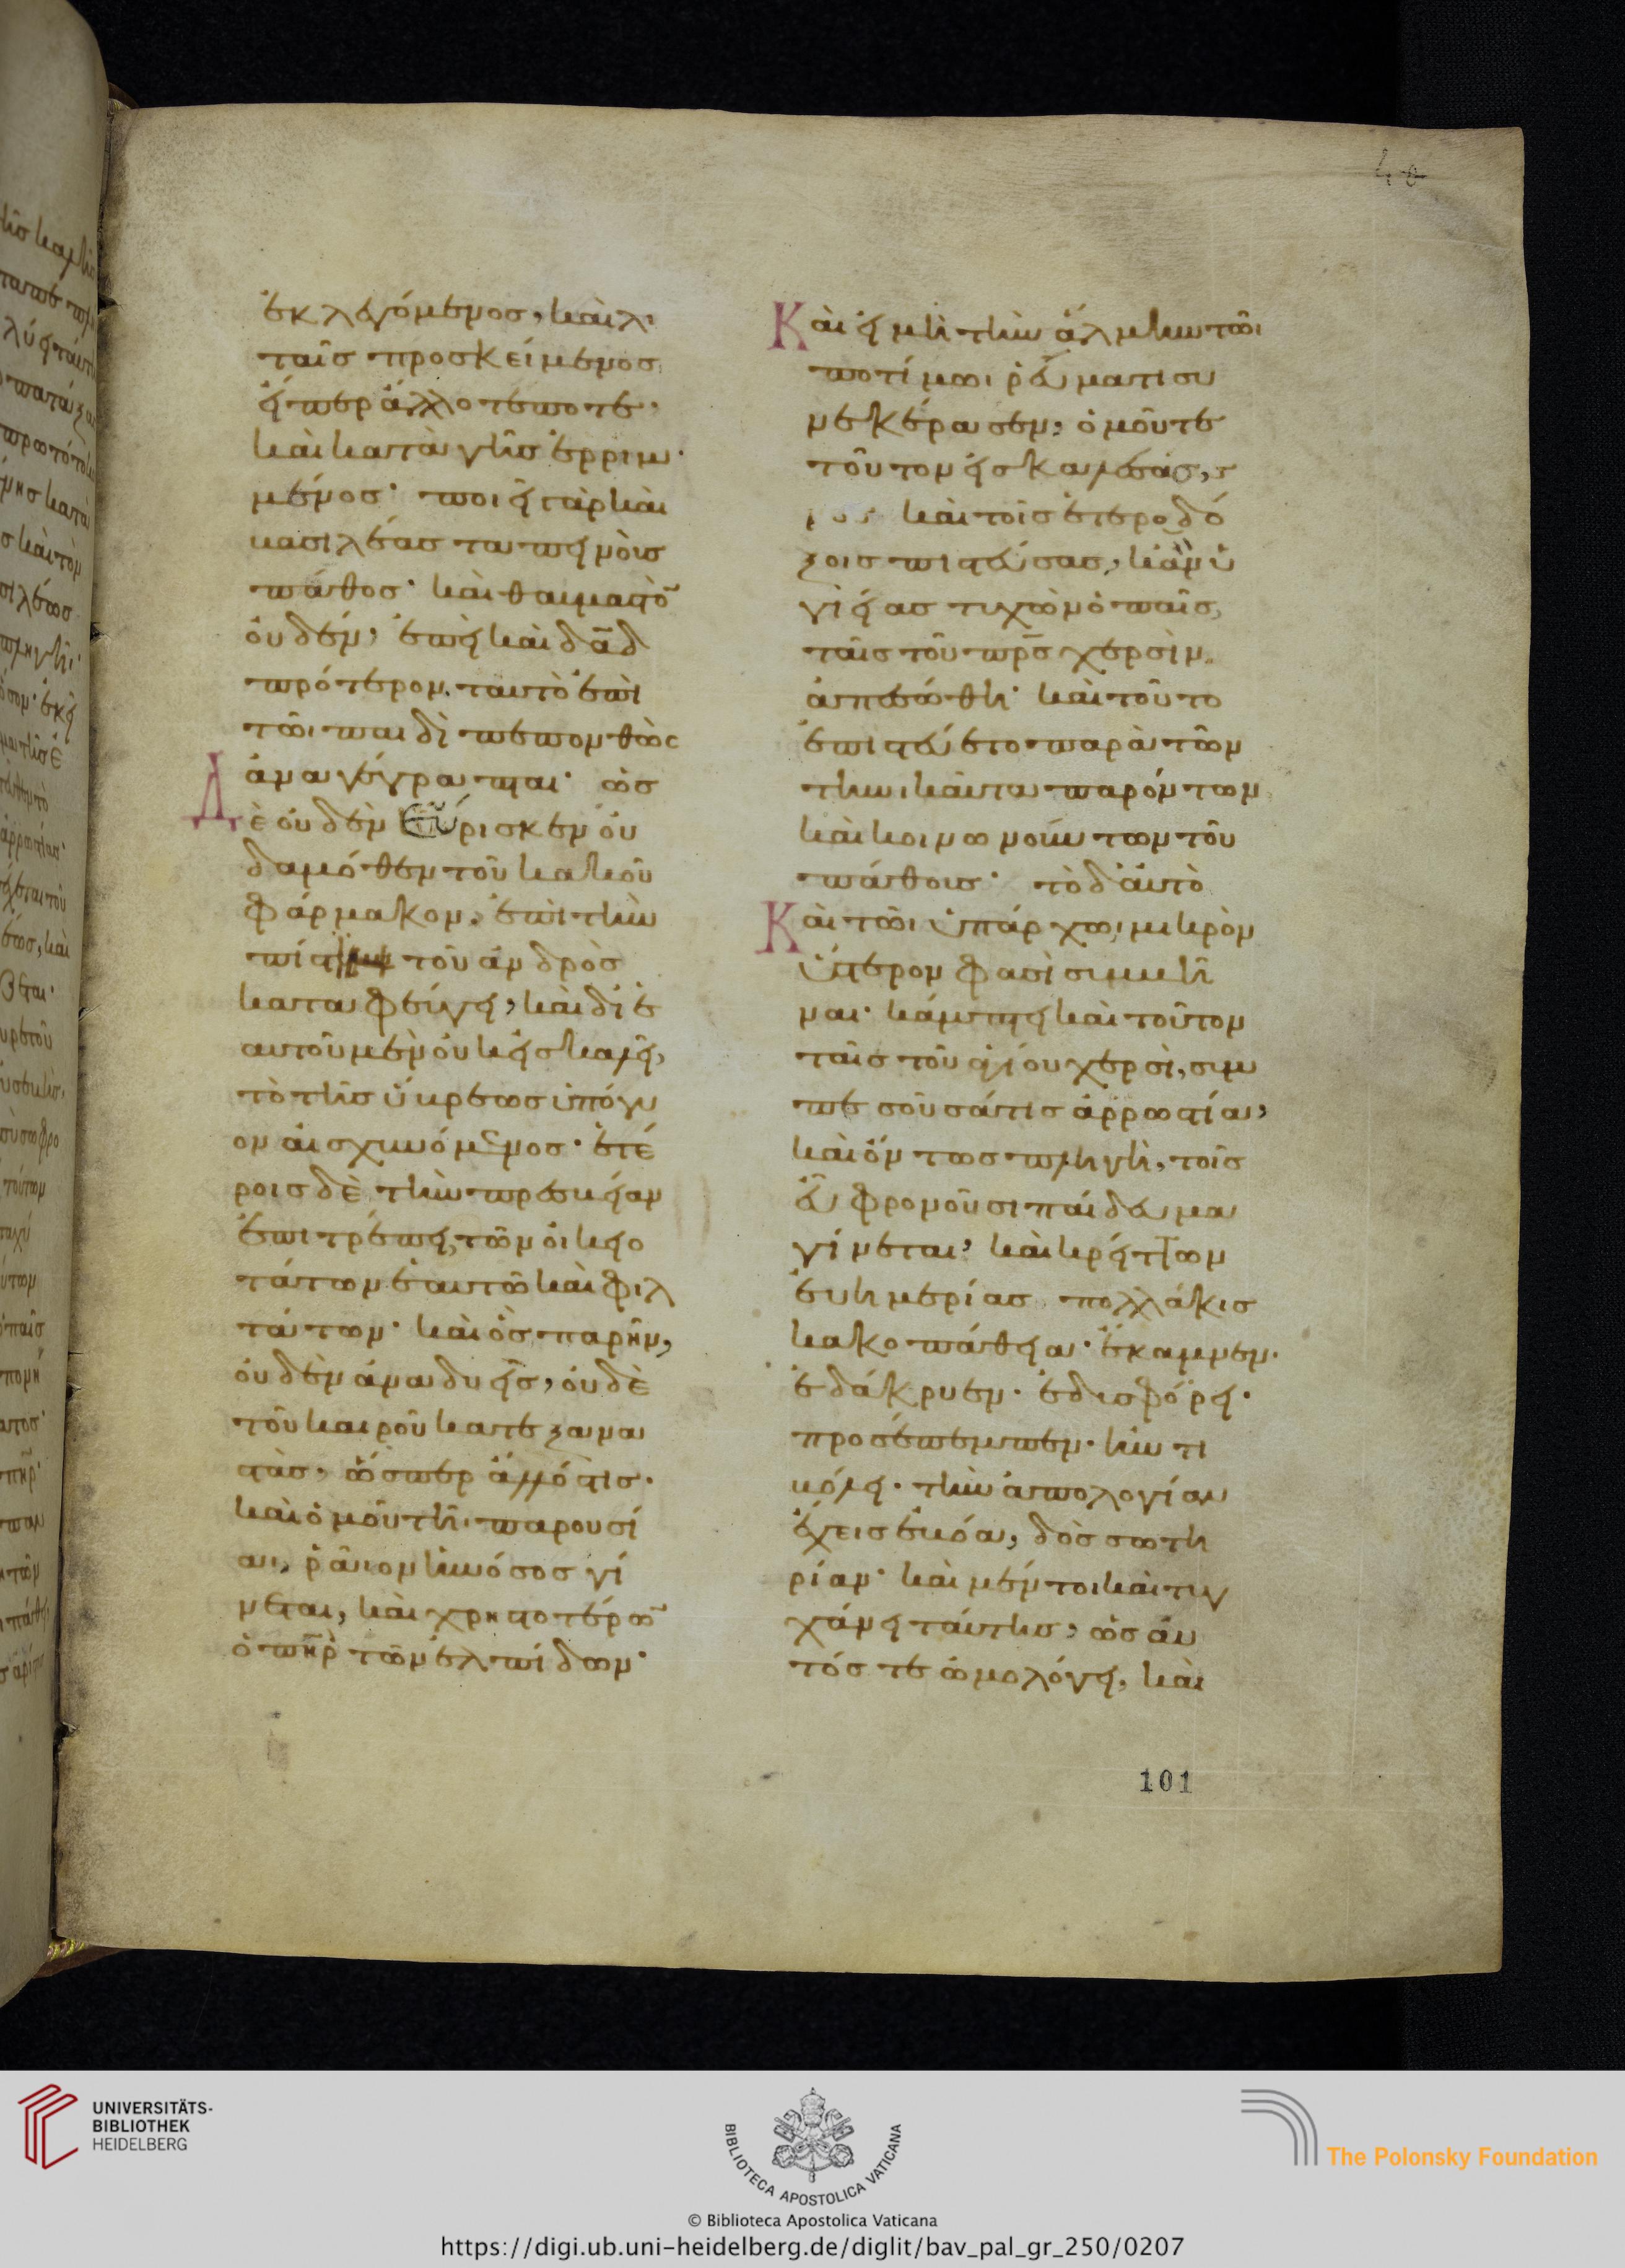 40
ἐκλεγόμενος, καὶ λι
ταῖς προσκείμενος
εἴπερ ἄλλοτέ ποτε·
καὶ κατὰ γῆς ἐρριμ
μένος· ποιεῖ γὰρ καὶ
βασιλέας ταπεινοὺς
πάθος· καὶ θαυμαστὸ
οὐδέν, ἐπεὶ καὶ δαδ
πρότερον ταυτὸ ἐπὶ
τῶι παιδὶ πεπονθὼς
ἀναγέγραπται· ὡς
Δὲ οὐδὲν εὕρισκεν οὐ
δαμόθεν τοῦ κακοῦ
φάρμακον, ἐπὶ τὴν
πίστιν τοῦ ἀνδρὸς
καταφεύγει, καὶ δι ἑ
αυτοῦ μὲν οὐκ εἰσκαλεῖ,
τὸ τῆς ὕβρεως ὑπόγυ
ον αἰσχυνόμενος· ἑτέ
ροις δὲ τὴν πρεσβείαν
ἐπιτρέπει, τῶν οἰκειο
τάτων ἑαυτῶ καὶ φιλ
τάτων· καὶ ὃς παρῆν,
οὐδὲν ἀναδυεὶς, οὐδὲ
τοῦ καιροῦ κατεξανα
στὰς, ὥσπερ ἄλλός τις·
καὶ ὁμοῦ τῆι παρουσί
αι, ῥᾶιον ἡ νόσος γί
νεται, καὶ χρηστοτέρων
ὁ πηρ τῶν ἐλπίδων·
Καὶ εἰ μὴ τὴν ἅλμην τῶι
ποτίμωι ῥεύματι συ
νεκέρασεν, ὁμοῦ τε
τοῦτον εἰσκαλέσας,
καὶ τοῖς ἑτεροδό
ξοις πιστεύσας, κἂν ὑ
γιείας τυχὼν ὁ παῖς,
ταῖς τοῦ πρς χερσὶν
ἀπεσώθη· καὶ τοῦτο
ἐπιστεύετο παρὰ τῶν
τηνικαῦτα παρόντων
καὶ κοινωνούντων τοῦ
πάθους· τὸ δ αὐτὸ
Καὶ τῶι ὑπάρχωι μικρὸν
ὕστερον φασὶ συμβῆ
ναι· κάμπτει καὶ τοῦτον
ταῖς τοῦ ἁγίου χερσὶ, συμ
πεσοῦσά τις ἀρρωστία,
καὶ ὄντως πληγὴ, τοῖς
εὖ φρονοῦσι παίδευμα
γίνεται, καὶ κρείττων
εὐημερίας πολλάκις
κακοπάθεια· ἔκαμνεν·
ἐδάκρυεν· ἐδυσφόρει·
προσέπεμπεν· ἠντι
βόλει· τὴν ἀπολογίαν
ἔχεις ἐβόα, δὸς σωτη
ρίαν· καὶ μέντοι καὶ τυγ
χάνει ταύτης, ὡς αὐ
τός τε ὡμολόγει, καὶ
101
UNIVERSITÄTS-
BIBLIOTHEK
HEIDELBERG
BIBLIOTECA APOSTOLICA VATICANA
The Polonsky Foundation
© Biblioteca Apostolica Vaticana
https://digi.ub.uni-heidelberg.de/diglit/bav_pal_gr_250/0207